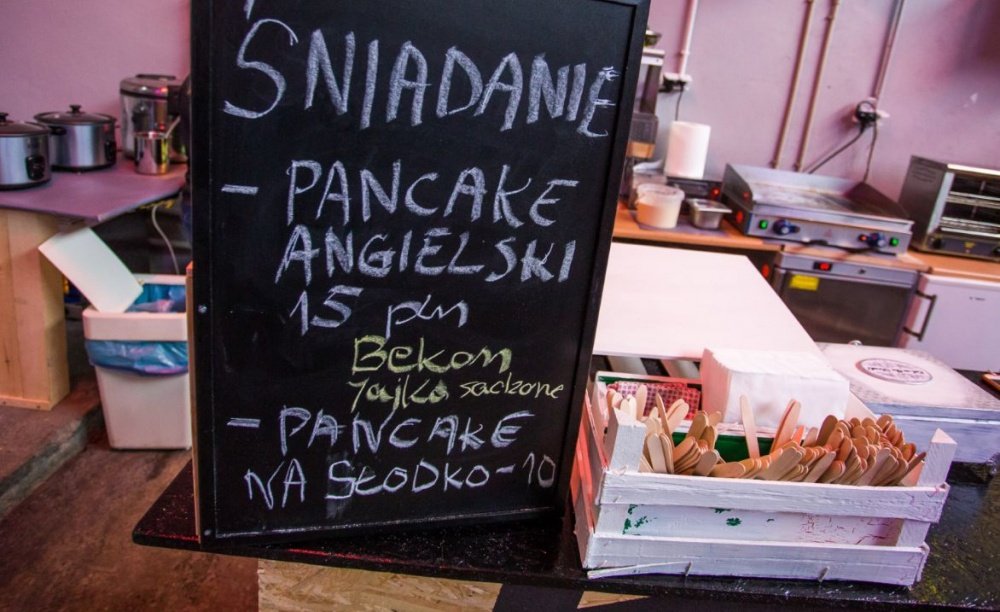 ŚNIADANIE
- PANCAKE
ANGIELSKI
15 pln
Bekon
Jajka sadzone
- PANCAKE
NA SŁODKO - 10